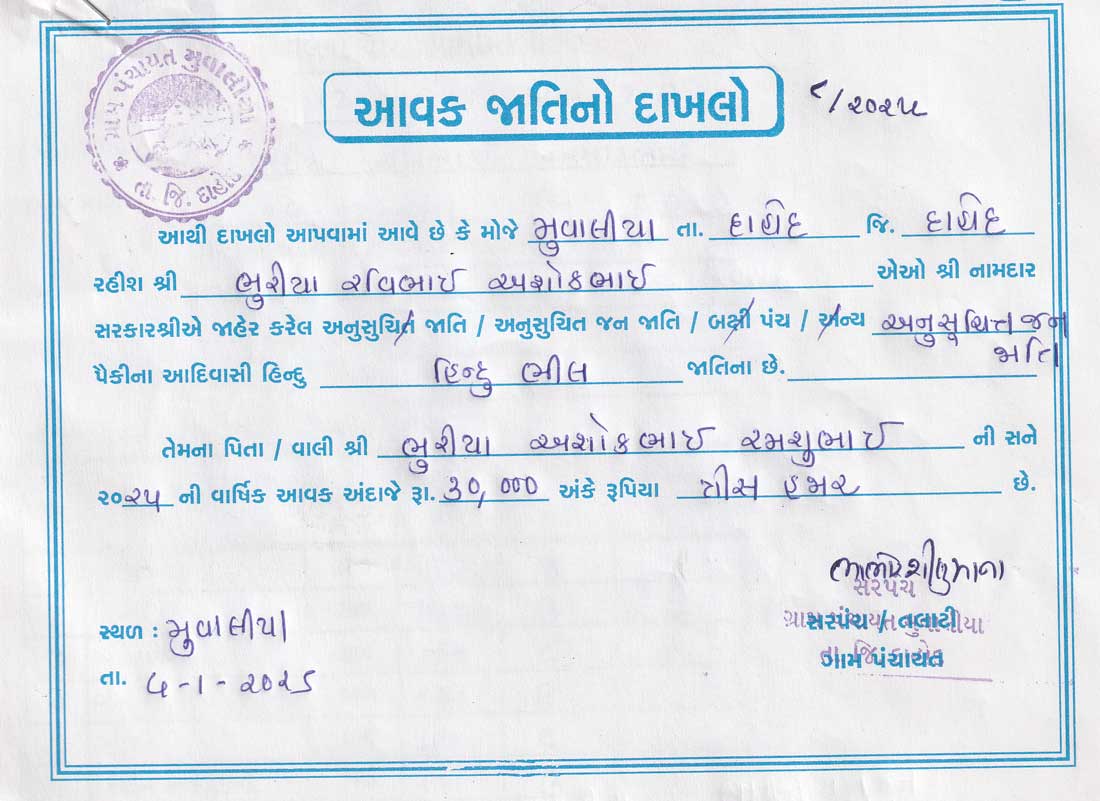 ગ્રામ પંચાયત મુવાલીયા
તા. જિ. દાહોદ
આવક જાતિનો દાખલો
/૨૦૨૫
આથી દાખલો આપવામાં આવે છે કે મોજે મુવાલીયા તા. દાહોદ જિ. દાહોદ
રહીશ શ્રી ભુરીયા રવિભાઈ અશોકભાઈ એઓ શ્રી નામદાર
સરકારશ્રીએ જાહેર કરેલ અનુસુચિત જાતિ / અનુસુચિત જન જાતિ / બક્ષી પંચ / અન્ય અનુસૂચિત જન
જાતિ
પૈકીના આદિવાસી હિન્દુ હિન્દુ ભીલ જાતિના છે.
તેમના પિતા / વાલી શ્રી ભુરીયા અશોકભાઈ રમશુભાઈ ની સને
૨૦૨૫ ની વાર્ષિક આવક અંદાજે રૂા. ૩૦,૦૦૦ અંકે રૂપિયા ત્રીસ હજાર છે.
સરપંચ
સ્થળ : મુવાલીયા
સરપંચ / તલાટી
ગામ પંચાયત
તા. ૫-૧-૨૦૨૬